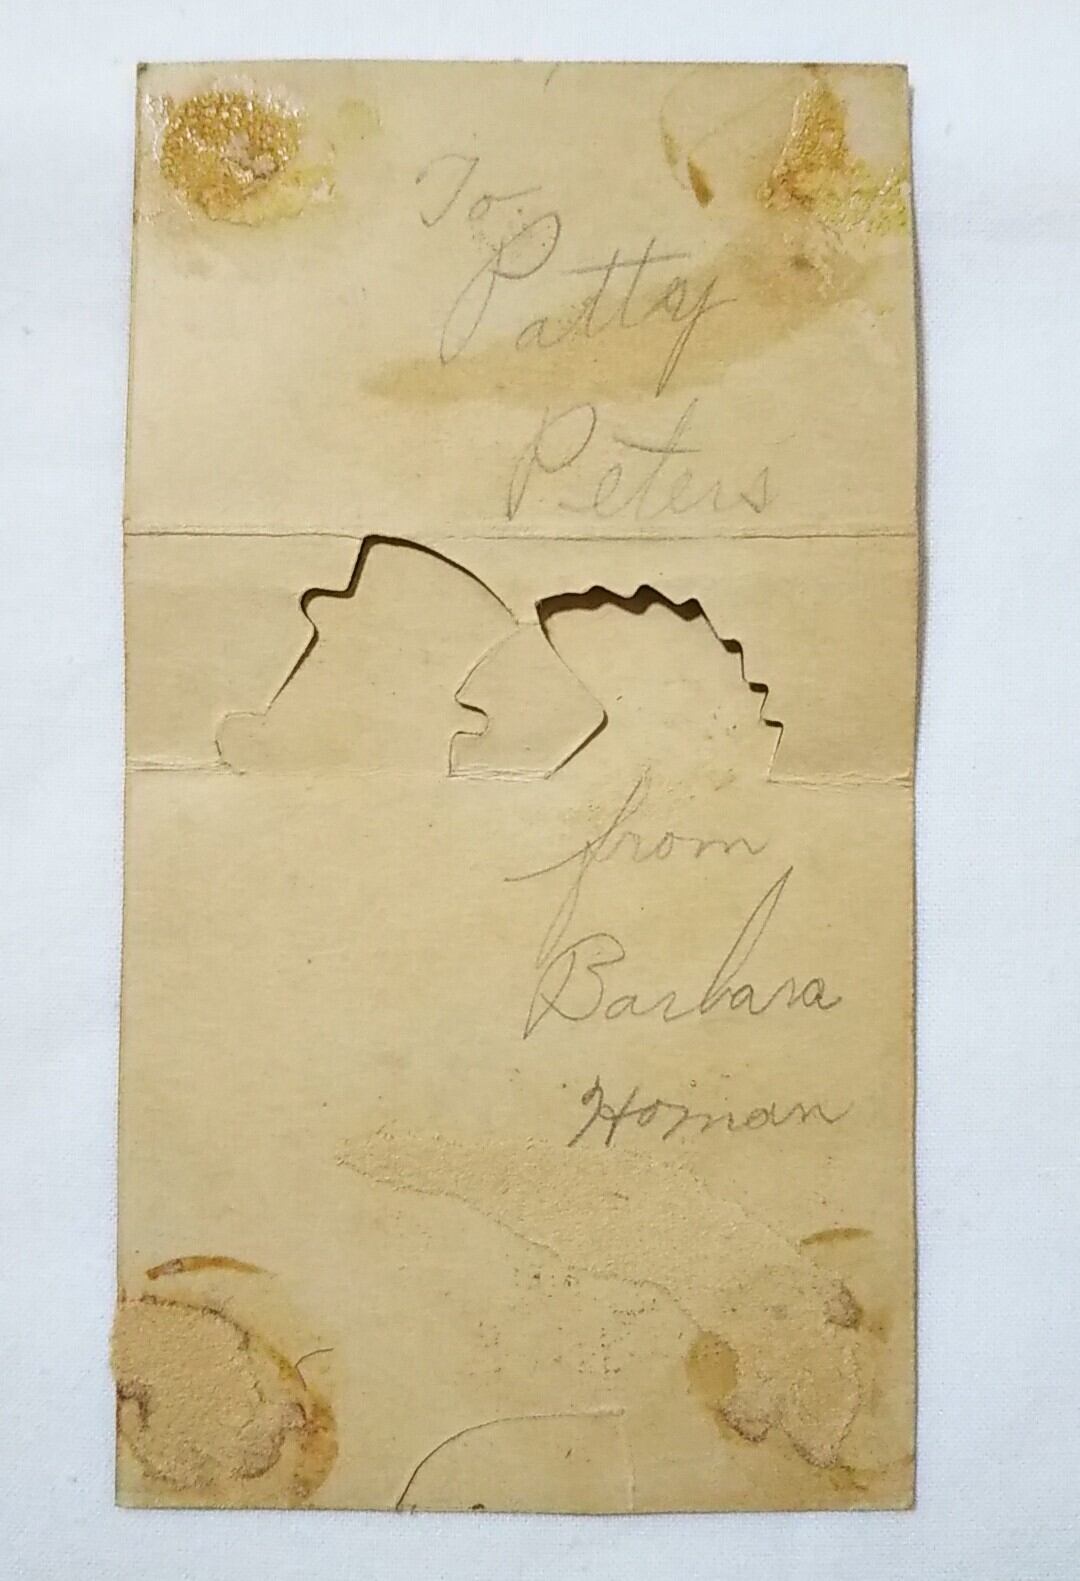 To
Patty
Peters
from
Barbara
Homan